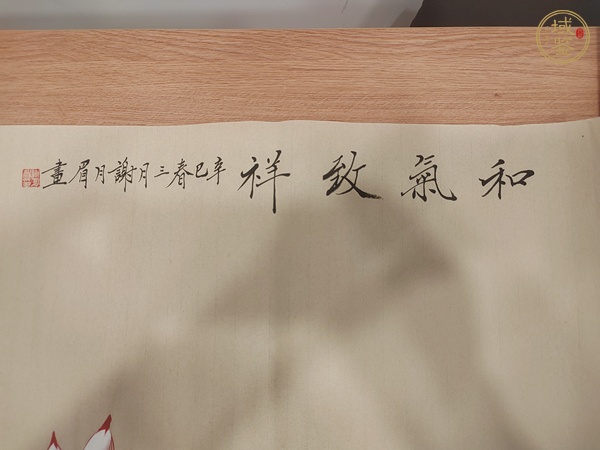 和氣致祥
辛巳春三月謝月眉畫